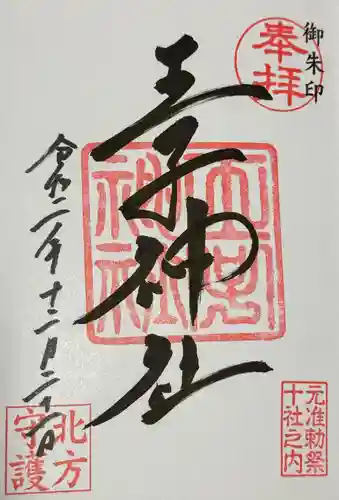 御朱印
奉拝
王子神社
神社
令和二年十二月二十一日
元准勅祭
十社之内
北方
守護